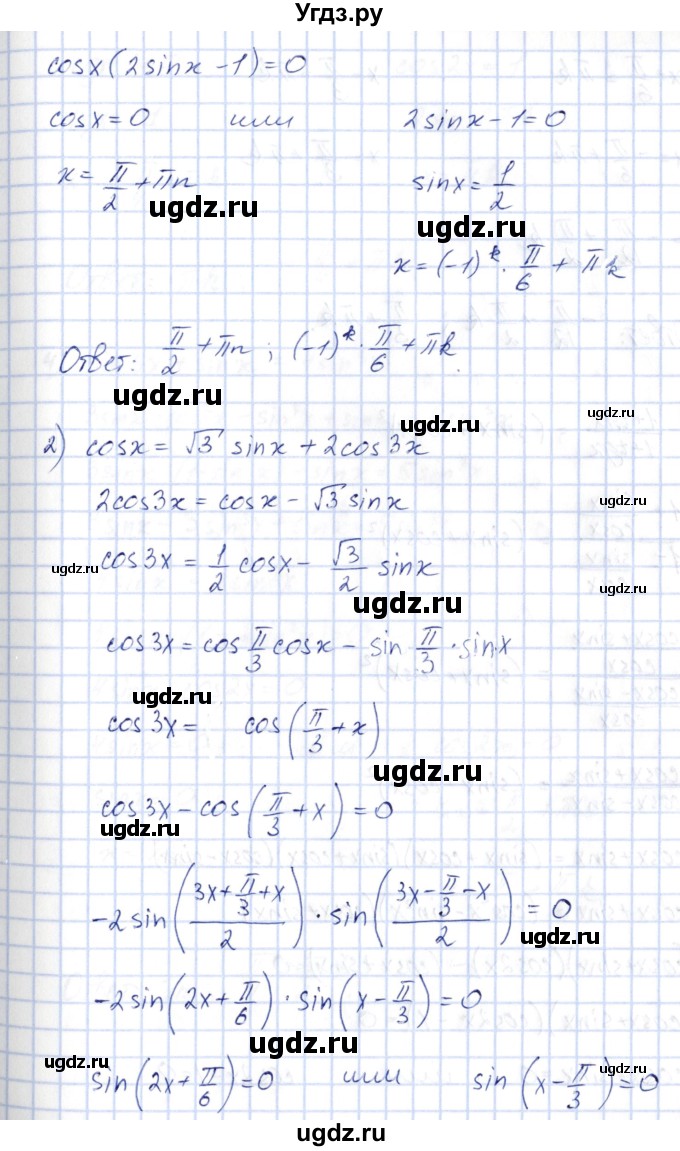 Угдз.ру
cosx(2sinx - 1)=0
cosx=0 или 2sinx-1=0
x= π/2 +πn sinx= 1/2
ugdz.ru ugdz.ru
x=(-1)^k · π/6 + πk
Ответ: π/2 +πn ; (-1)^k · π/6 +πk.
ugdz.ru ugdz.ru
ugdz.ru
ugdz.ru
2) cosx= √3 sinx + 2cos3x
2cos3x= cosx - √3 sinx
ugdz.ru
cos3x= 1/2 cosx - √3/2 sinx
ugdz.ru
ugdz.ru
cos3x= cos π/3 cosx - sin π/3 · sinx
ugdz.ru
cos3x= cos(π/3 +x)
ugdz.ru
cos3x - cos(π/3 +x) =0
ugdz.ru
-2sin((3x+π/3+x)/2) · sin((3x-π/3-x)/2) =0
ugdz.ru
-2sin(2x+π/6) · sin(x-π/3)=0
ugdz.ru
ugdz.ru
sin(2x+π/6)=0 или sin(x-π/3)=0
ugdz.ru
ugdz.ru
ugdz.ru